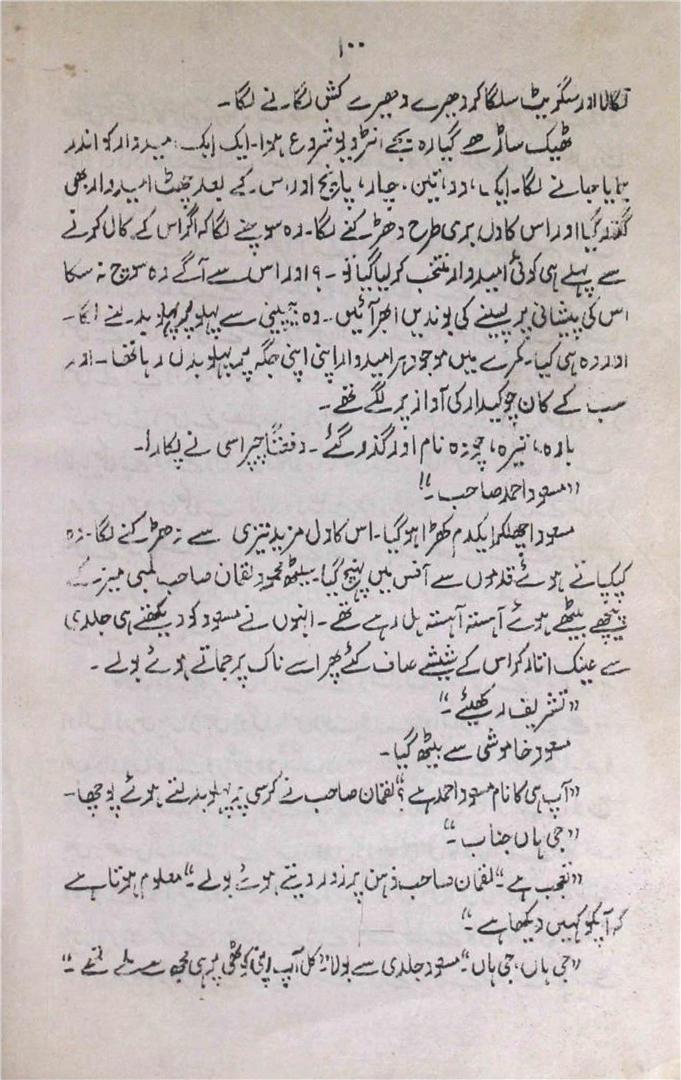 ۱۰۰
نکالا اور سگریٹ سلگا کر دھیرے دھیرے کش لگانے لگا۔
ٹھیک ساڑھے گیارہ بجے انٹرویو شروع ہوا۔ ایک ایک امیدوار کو اندر
بلایا جانے لگا۔ ایک، دو، تین، چار، پانچ اور اس کے بعد چھٹا امیدوار بھی
گذر گیا اور اس کا دل بری طرح دھڑکنے لگا۔ وہ سوچنے لگا کہ اگر اس کے کال کرنے
سے پہلے ہی کوئی امیدوار منتخب کر لیا گیا تو۔؟ اور اس سے آگے وہ سوچ نہ سکا
اس کی پیشانی پر پسینے کی بوندیں ابھر آئیں۔ وہ بے چینی سے پہلو پر پہلو بدلنے لگا۔
اور وہ ہی کیا۔ کمرے میں موجود ہر امیدوار اپنی اپنی جگہ پر پہلو بدل رہا تھا۔ اور
سب کے کان چوکیدار کی آواز پر لگے تھے۔
بارہ، تیرہ، چودہ نام اور گذر گئے۔ دفعتاً چپراسی نے پکارا۔
”مسعود احمد صاحب۔“!
مسعود اچھلکر ایکدم کھڑا ہو گیا۔ اس کا دل مزید تیزی سے دھڑکنے لگا۔ وہ
کپکپاتے ہوئے قدموں سے آفس میں پہنچ گیا۔ سیٹھ محمود لقمان صاحب لمبی میز کے
پیچھے بیٹھے ہوئے آہستہ آہستہ ہل رہے تھے۔ انہوں نے مسعود کو دیکھتے ہی جلدی
سے عینک اتار کر اس کے شیشے صاف کئے پھر اسے ناک پر جماتے ہوئے بولے۔
”تشریف رکھیئے۔“
مسعود خاموشی سے بیٹھ گیا۔
”آپ ہی کا نام مسعود احمد ہے؟“ لقمان صاحب نے کرسی پر پہلو بدلتے ہوئے پوچھا۔
”جی ہاں جناب۔“
”تعجب ہے۔“ لقمان صاحب ذہن پر زور دیتے ہوئے بولے۔ ”معلوم ہوتا ہے
کہ آپکو کہیں دیکھا ہے۔“
”جی ہاں، جی ہاں۔“ مسعود جلدی سے بولا۔ ”کل آپ اپنی کوٹھی پر ہی مجھ سے ملے تھے۔“